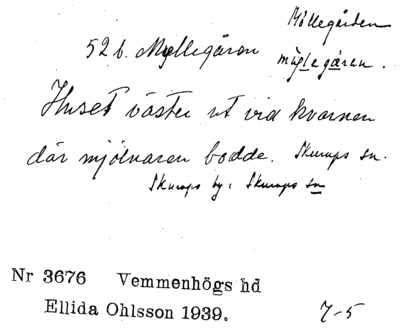 Möllegården
52 b. Myllegåren mỳllegåren.
Huset väster ut vid kvarnen
där mjölnaren bodde. Skurups sn.
Skurups by, Skurups sn
Nr 3676 Vemmenhögs hd
Ellida Ohlsson 1939. 7-5